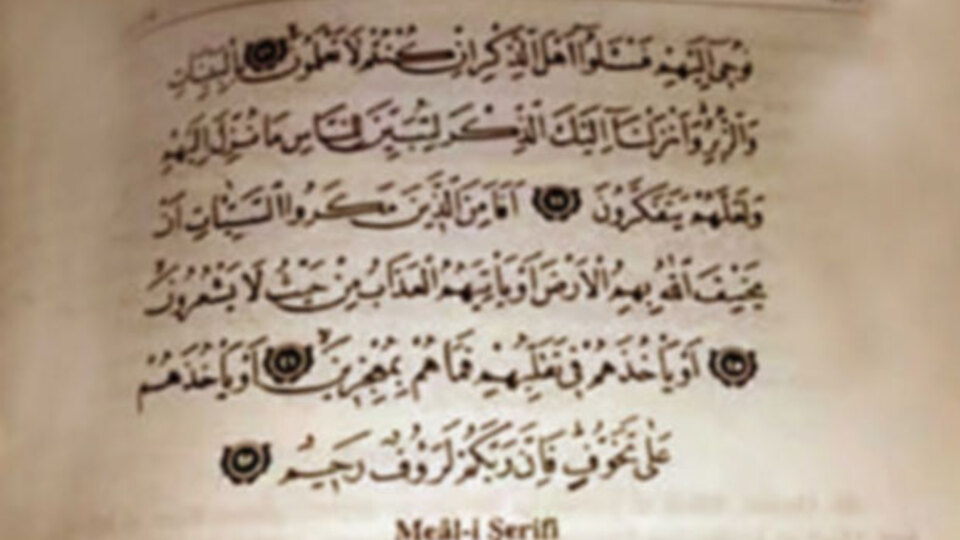 نُوحِي إِلَيْهِمْ فَسْـَٔلُوا أَهْلَ الذِّكْرِ إِنْ كُنْتُمْ لَا تَعْلَمُونَ ﴿٤٣﴾ بِالْبَيِّنَاتِ
وَالزُّبُرِ وَأَنْزَلْنَا إِلَيْكَ الذِّكْرَ لِتُبَيِّنَ لِلنَّاسِ مَا نُزِّلَ إِلَيْهِمْ
وَلَعَلَّهُمْ يَتَفَكَّرُونَ ﴿٤٤﴾ أَفَأَمِنَ الَّذِينَ مَكَرُوا السَّيِّئَاتِ أَنْ
يَخْسِفَ اللَّهُ بِهِمُ الْأَرْضَ أَوْ يَأْتِيَهُمُ الْعَذَابُ مِنْ حَيْثُ لَا يَشْعُرُونَ
﴿٤٥﴾ أَوْ يَأْخُذَهُمْ فِي تَقَلُّبِهِمْ فَمَا هُمْ بِمُعْجِزِينَ ﴿٤٦﴾ أَوْ يَأْخُذَهُمْ
عَلَى تَخَوُّفٍ فَإِنَّ رَبَّكُمْ لَرَءُوفٌ رَحِيمٌ ﴿٤٧﴾
Meâl-i Şerifi